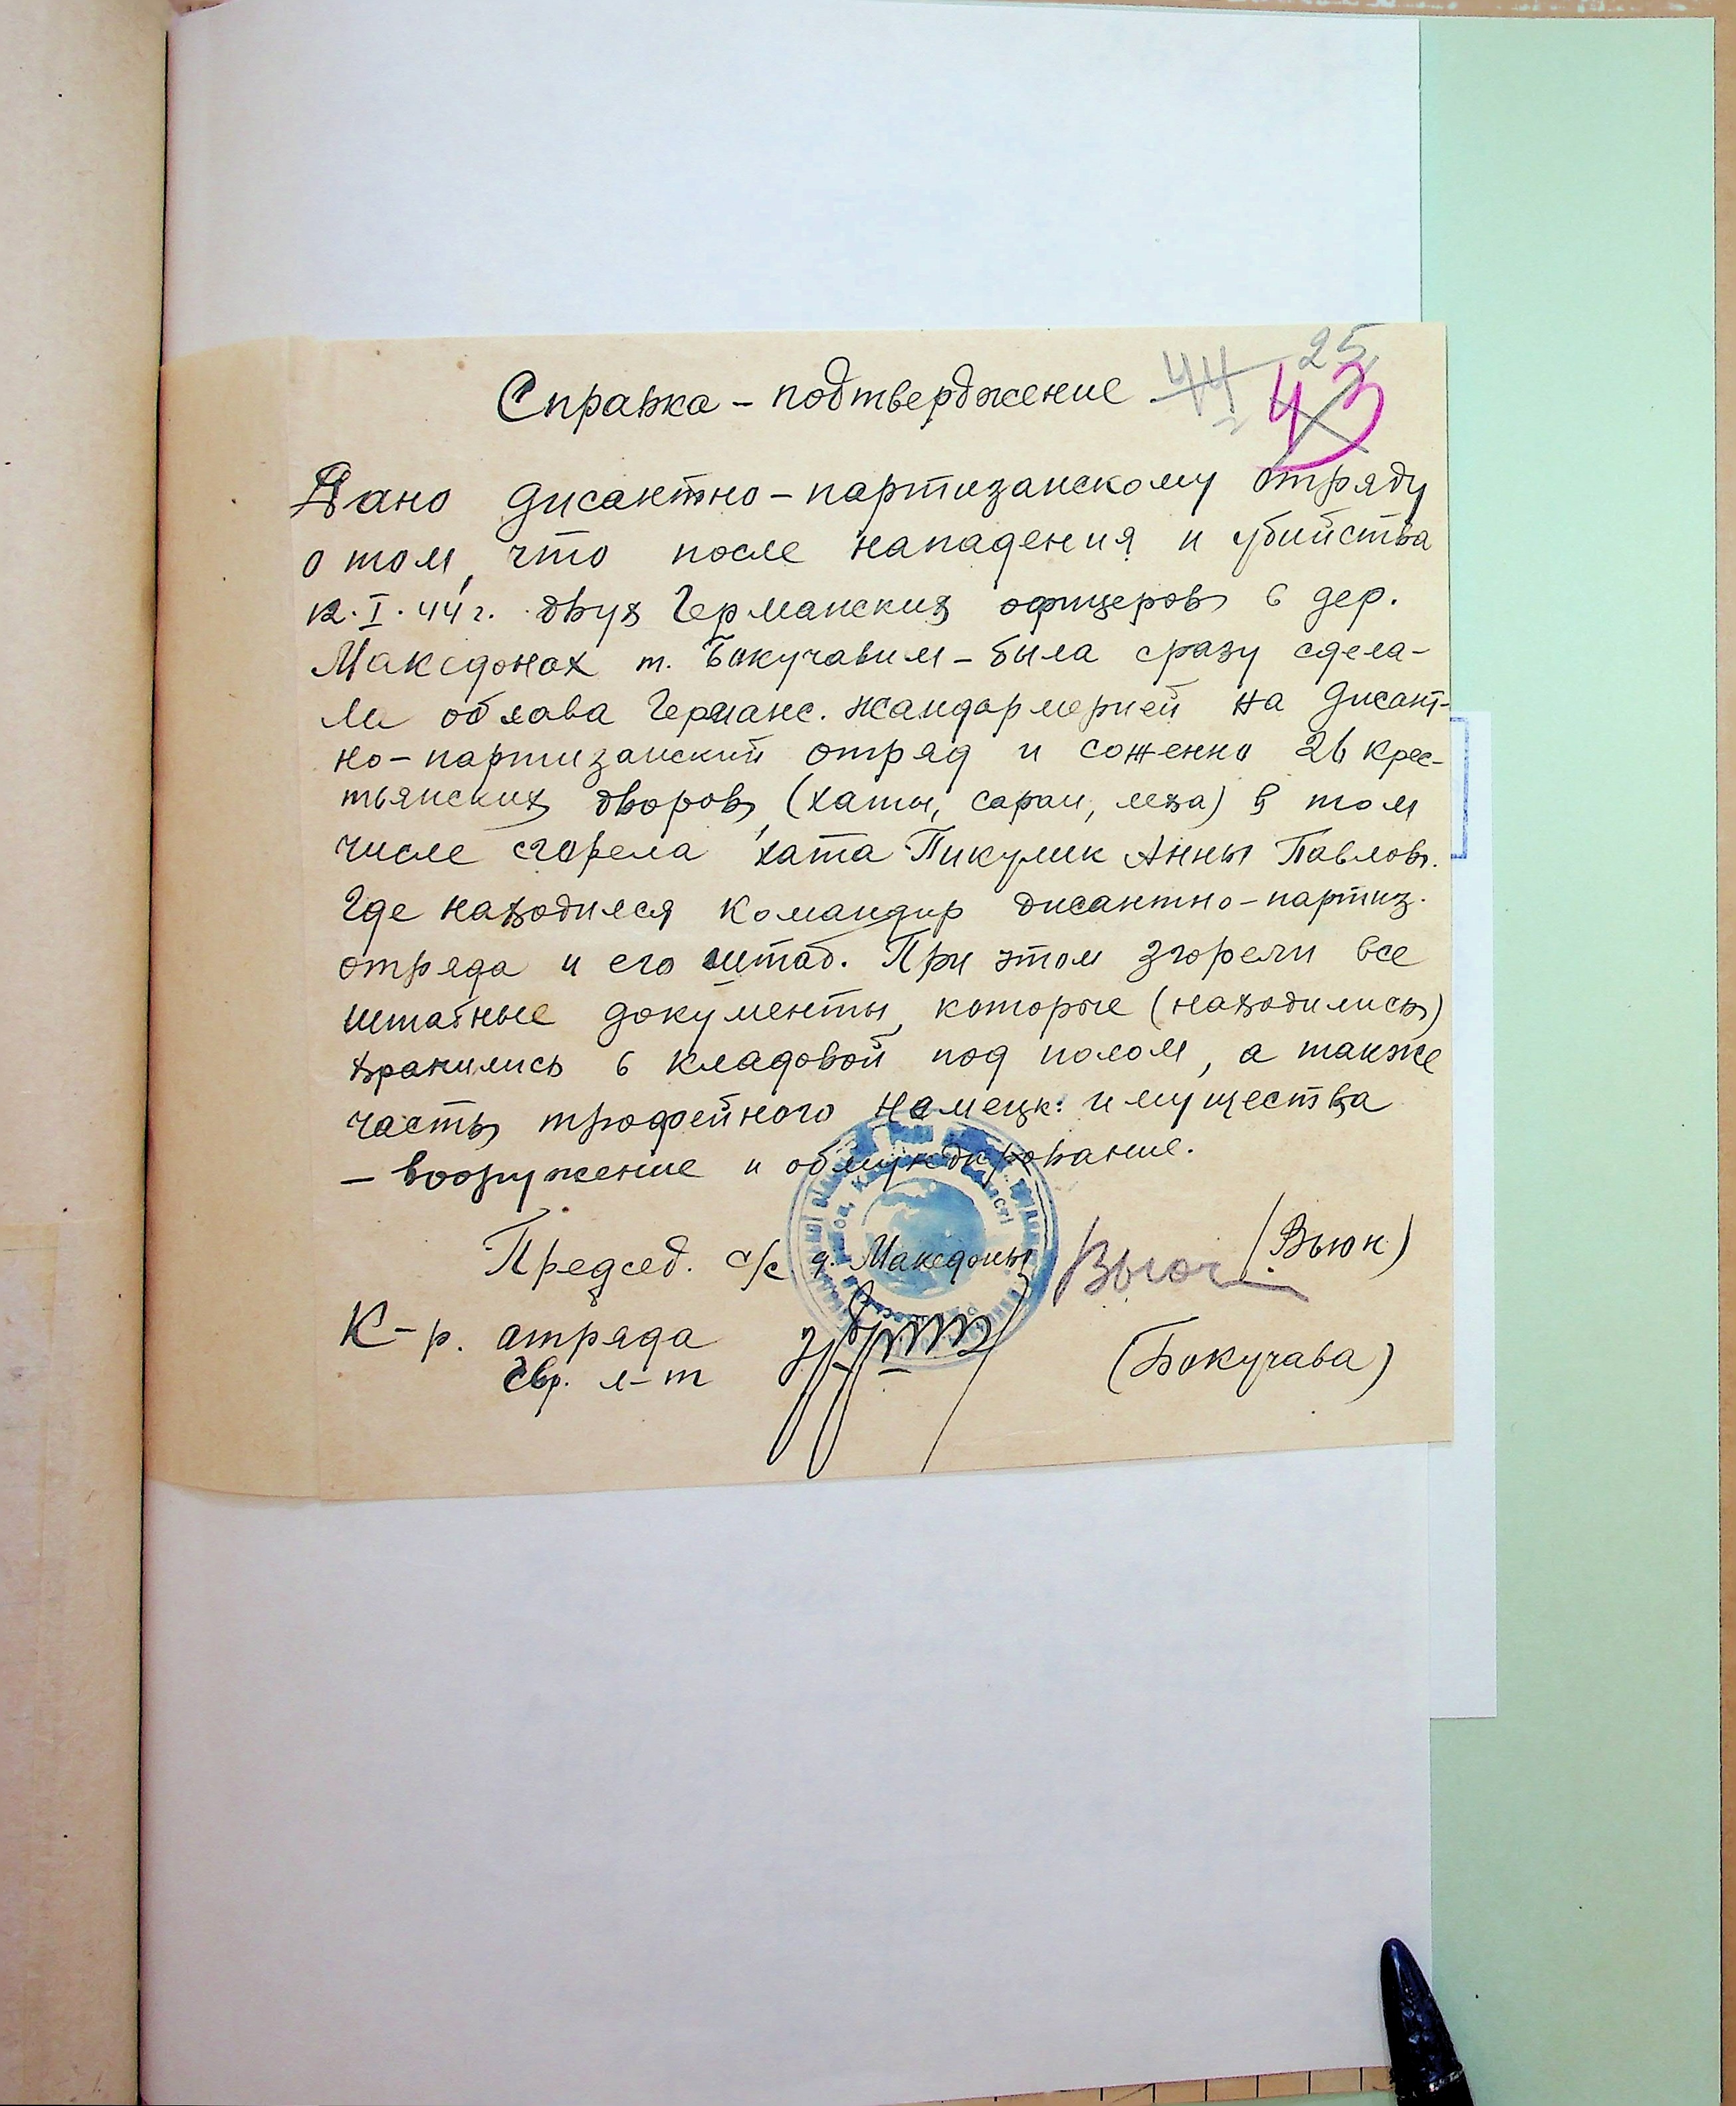 44 25
Справка – подтверждение 43
Дано дисантно – партизанскому отряду
о том, что после нападения и убийства
12.I.44 г. двух Германских офицеров в дер.
Македонах т. Бокучавим – была сразу сдела-
ли облава Германс. жандармерией на дисант-
но – партизанский отряд и соженно 26 крес-
тьянских дворов, (хаты, сараи, ) в том
числе сгорела хата Пикулик Анны Павлов.
Где находился командир дисантно – партиз.
отряда и его штаб. При этом згорели все
штабные документы, которые (находились)
хранились в кладовой под полом, а также
часть трофейного Немецк: имущества
– вооружение и обмундирование.
Председ. с/с д. Македоны Вьюн (Вьюн)
К-р. отряда
гвр. л-т (Бокучава)